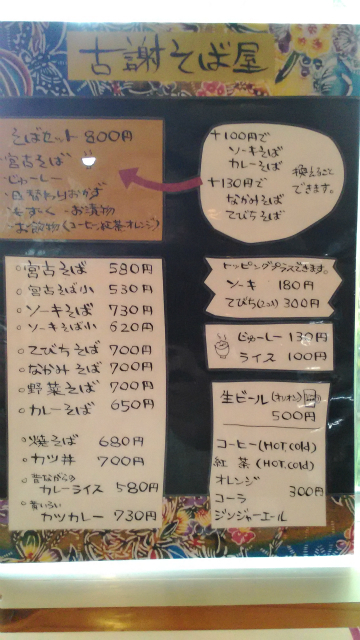 古謝そば屋
そばセット 800円
・宮古そば
・じゅーしー
・日替わりおかず
・もずく ・お漬物
・お飲物(コーヒー,紅茶,オレンジ)
+100円で
ソーキそば
カレーそば
+130円で
なかみそば
てびちそば
換えることできます。
○宮古そば 580円
○宮古そば小 530円
○ソーキそば 730円
○ソーキそば小 620円
○てびちそば 700円
○なかみそば 700円
○野菜そば 700円
○カレーそば 650円
○焼そば 680円
○カツ丼 700円
○昔ながらの
カレーライス 580円
○昔いらい
カツカレー 730円
トッピングプラスできます。
ソーキ 180円
てびち(2コ) 300円
じゅーしー 130円
ライス 100円
生ビール(オリオン)
500円
コーヒー(HOT,cold)
紅茶(HOT,cold)
オレンジ
コーラ 300円
ジンジャーエール